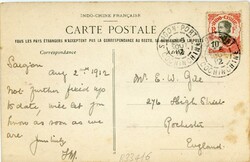 INDO-CHINE FRANÇAISE
CARTE POSTALE
TOUS LES PAYS ÉTRANGERS N'ACCEPTENT PAS LA CORRESPONDANCE AU RECTO
CORRESPONDANCE
ADRESSE
SAIGON-PORT
COCHINCHINE
10
12
Saigon
Aug 2nd 1912
Not further fixed up
to date will let you
know as soon as we
are
Mr. E. W. Gill
276 High Street
Rochester
England